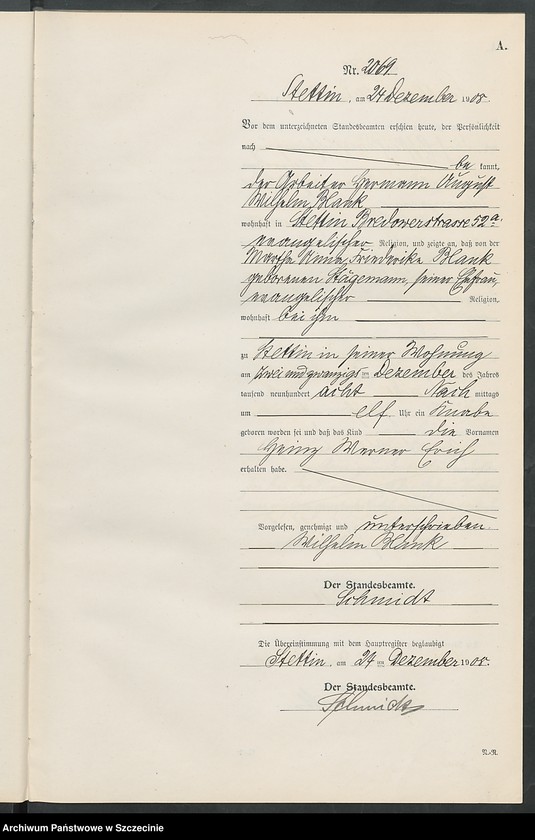 A.
Nr. 2069
Stettin, am 24 Dezember 1908.
Vor dem unterzeichneten Standesbeamten erschien heute, der Persönlichkeit
nach
be kannt,
der Arbeiter Hermann August
Wilhelm Blank
wohnhaft in Stettin Bredowerstrasse 52a
evangelischer Religion, und zeigte an, daß von der
Martha Anna Friederike Blank
geborenen Stägemann, seiner Ehefrau,
evangelischer Religion,
wohnhaft bei ihm
zu Stettin in seiner Wohnung
am zwei und zwanzigsten Dezember des Jahres
tausend neunhundert acht Nach mittags
um elf Uhr ein Knabe
geboren worden sei und daß das Kind die Vornamen
Heinz Werner Erich
erhalten habe.
Vorgelesen, genehmigt und unterschrieben.
Wilhelm Blank
Der Standesbeamte.
Schmidt
Die Übereinstimmung mit dem Hauptregister beglaubigt
Stettin, am 24 ten Dezember 1908.
Der Standesbeamte.
Schmidt
Archiwum Państwowe w Szczecinie